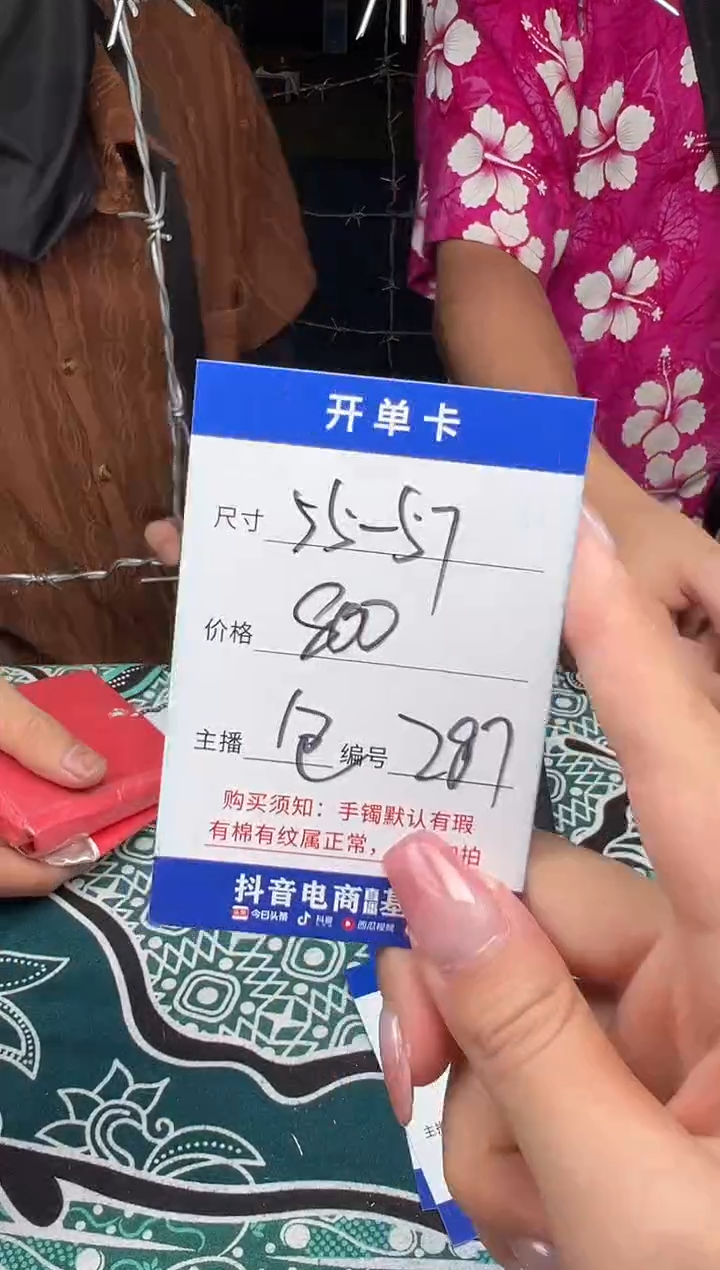 开单卡
尺寸 55-57
价格 800
主播 包 编号 287
购买须知：手镯默认有瑕
有棉有纹属正常，
拍
抖音电商直播基
今日头条 抖音 西瓜视频
主播